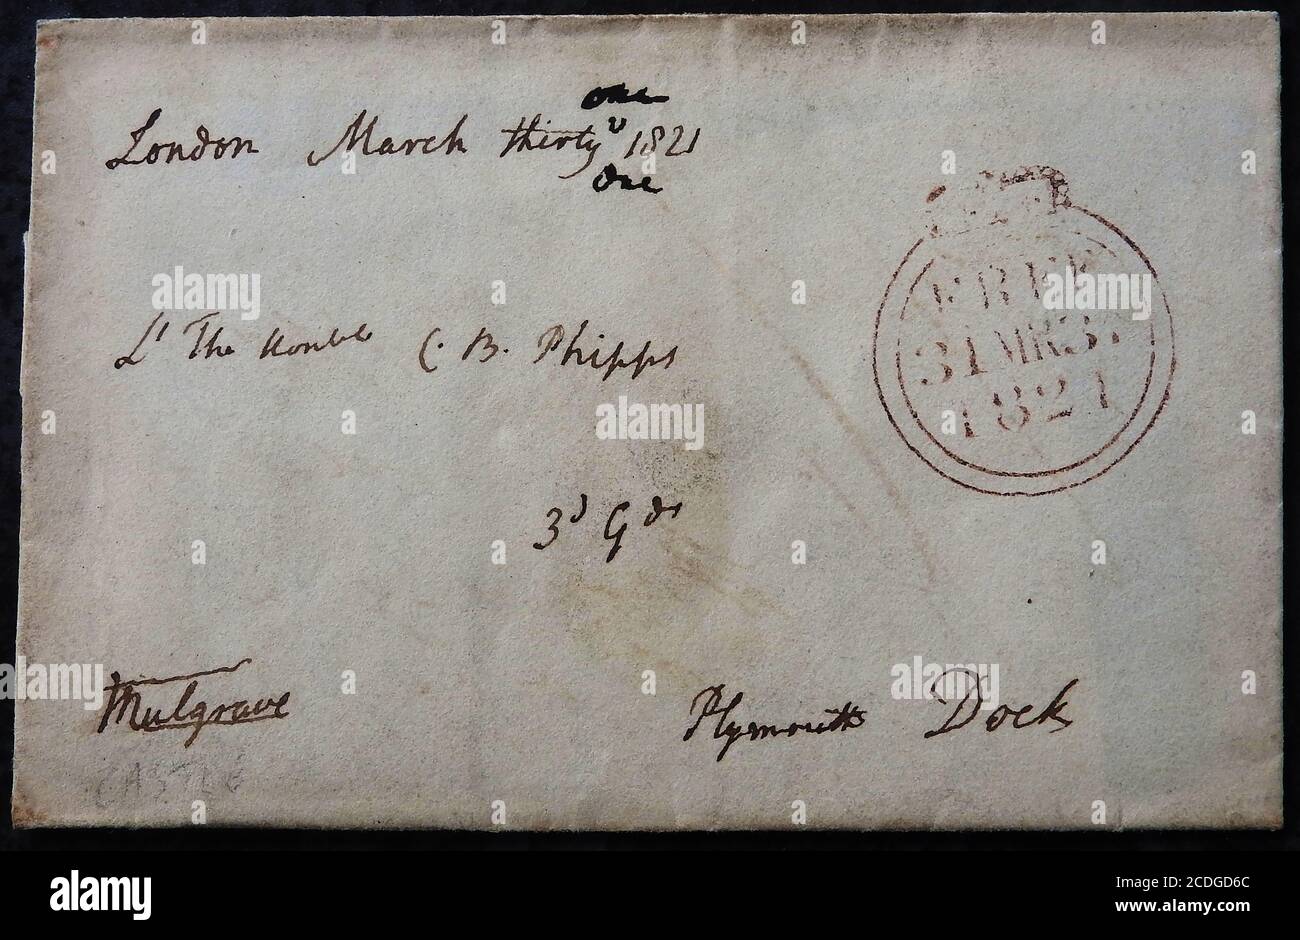 one
London March thirty 1821
one
Lt The Honble C. B. Phipps
3d Gds
Mulgrave
Plymouth Dock
CASTLE
FREE
31 MR 31
1821
alamy
Image ID: 2CDGD6C
www.alamy.com